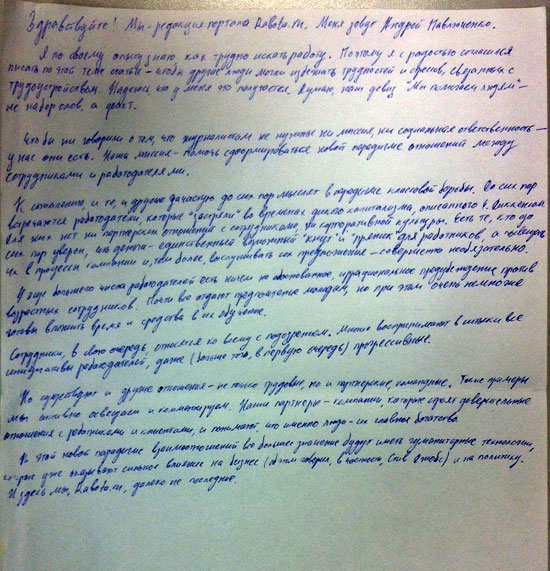 Здравствуйте! Мы - редакция портала Rabota.ru. Меня зовут Андрей Павлюченко.
Я по своему опыту знаю как трудно искать работу. Поэтому я с радостью согласился
писать по этой теме статьи - чтобы другие люди могли избежать трудностей и стрессов, связанных с
трудоустройством. Надеюсь что у меня это получается. Думаю, наш девиз "Мы помогаем людям" -
не набор слов, а факт.
Что бы ни говорили о том, что журналистам не нужны ни миссия, ни социальная ответственность -
у нас они есть. Наша миссия - помочь сформироваться новой парадигме отношений между
сотрудниками и работодателями.
К сожалению, и те, и другие зачастую до сих пор мыслят в парадигме классовой борьбы. До сих пор
встречаются работодатели, которые "застряли" во временах дикого капитализма, описанного Ч. Диккенсом
Для них нет ни партнерских отношений с сотрудниками, ни корпоративной культуры. Есть те, кто до
сих пор уверен, что деньги - единственный возможный "кнут" и "пряник" для работников, а посвящать
их в процессы компании и, тем более, выслушивать их предложения - совершенно необязательно.
У еще большего числа работодателей есть ничем не обоснованное, иррациональное предубеждение против
возрастных сотрудников. Почти все отдают предпочтение молодым, но при этом очень немногие
готовы вложить время и средства в их обучение.
Сотрудники, в свою очередь, относятся ко всему с подозрением. Многие воспринимают в штыки все
инициативы работодателей, даже (больше того, в первую очередь) прогрессивные.
Но существуют и другие отношения - не только трудовые, но и партнерские, командные. Такие примеры
мы активно освещаем и комментируем. Наши партнеры - компании которые строят доверительные
отношения с работниками и клиентами, и понимают, что именно люди - их главное богатство.
В этой новой парадигме взаимоотношений все большее значение будут иметь гуманитарные технологии,
которые уже оказывают сильное влияние на бизнес (об этом говорил, в частности, Стив Джобс) и на политику.
И здесь мы, Rabota.ru, далеко не последние.